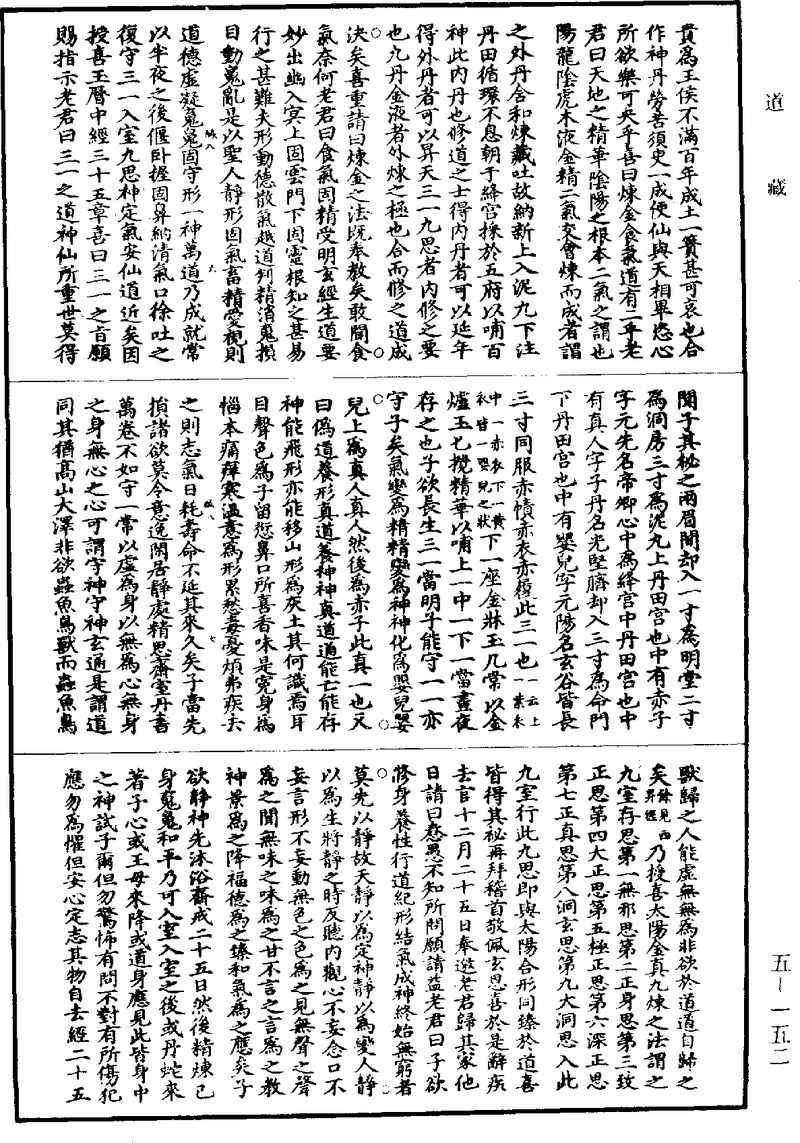 道藏
五-一五二
貴為王侯不滿百年成土一簣甚可哀也合
作神丹勞苦須臾一成便仙與天相畢恣心
所欲樂可央乎喜曰煉金食氣道有二乎老
君曰天地之精華陰陽之根本二氣之謂也
陽龍陰虎木液金精二氣交會煉而成者謂
之外丹含和煉藏吐故納新上入泥丸下注
丹田循環不息朝于絳宮採於五府以哺百
神此內丹也修道之士得內丹者可以延年
得外丹者可以昇天三一九思者內修之要
也九丹金液者外煉之極也合而修之道成
決矣喜重請曰煉金之法既奉教矣敢聞食
氣奈何老君曰食氣固精受明玄經生道要
妙出幽入冥上固雲門下固靈根知之甚易
行之甚難夫形動德散氣越道列精消䰟損
目動䰟亂是以聖人靜形固氣畜精愛視則
道德虛凝䰟䰟固守形一神萬道乃成就常
以半夜之後偃卧握固鼻納清氣口徐吐之
復守三一入室九思神定氣安仙道近矣因
授喜玉曆中經三十五章喜曰三一之旨願
賜指示老君曰三一之道神仙所重世莫得
聞子其秘之兩眉間却入一寸為明堂二寸
為洞房三寸為泥丸上丹田宮也中有赤子
字元先名帝卿心中為絳宮中丹田宮也中
有真人字子丹名光堅臍却入三寸為命門
下丹田宮也中有嬰兒字元陽名玄谷皆長
三寸同服赤幘赤衣赤履此三一也一云上一紫衣
中一赤衣下一黃衣皆一嬰兒之狀下一座金牀玉几常以金
爐玉匕攪精華以哺上一中一下一當晝夜
存之也子欲長生三一當明子能守一一亦
守子矣氣變為精精變為神神化為嬰兒嬰
兒上為真人真人然後為赤子此真一也又
曰偽道養形真道養神神真道通能亡能存
神能飛形亦能移山形為灰土其何識焉耳
目聲色為子留愆鼻口所喜香味是冤身為
惱本痛痒寒溫意為形累愁毒憂煩弗疾去
之則志氣日耗壽命不延其來久矣子當先
損諸欲莫令意逸閑居靜處精思齋室丹書
萬卷不如守一常以虛為身以無為心無身
之身無心之心可謂守神守神玄通是謂道
同其猶高山大澤非欲蟲魚鳥獸而蟲魚鳥
獸歸之人能虛無無為非欲於道道自歸之
矣餘見西昇經乃授喜太陽金真九煉之法謂之
九室存思第一無邪思第二正身思第三致
正思第四大正思第五極正思第六深正思
第七正真思第八洞玄思第九大洞思入此
九室行此九思即與太陽合形同臻於道喜
皆得其祕再拜稽首敬佩玄恩喜於是辭疾
去官十二月二十五日奉邀老君歸其家他
日請曰愚不知所問願請益老君曰子欲
修身養性行道紀形結氣成神終始無窮者
莫先以靜故天靜以為定神靜以為變人靜
以為生將靜之時反聽內觀心不妄念口不
妄言形不妄動無色之色為之見無聲之聲
為之聞無味之味為之甘不言之言為之教
神景為之降福德為之臻和氣為之應矣子
欲靜神先沐浴齋戒二十五日然後精煉已
身䰟䰟和平乃可入室入室之後或丹蛇來
著子心或王母來降或道身應見此皆身中
之神試子爾但勿驚怖有問不對有所傷犯
應勿為懼但安心定志其物自去經二十五